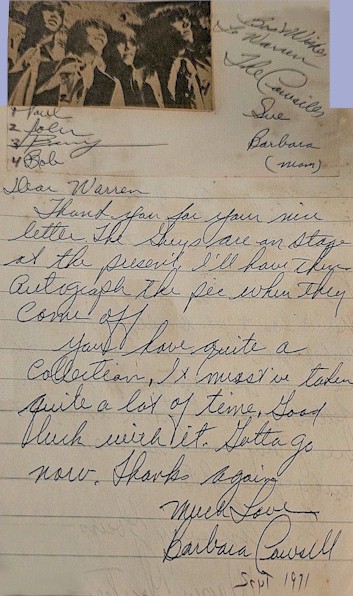 Best Wishes
To Warren
The Cowsills
Sue
Barbara
(mom)
1 Paul
2 John
3 Barry
4 Bob
Dear Warren
Thank you for your nice
letter. The Guys are on stage
at the present, I'll have them
autograph the pic when they
come off
You have quite a
collection, It must've taken
quite a lot of time. Good
Luck with it. Gotta go
now. Thanks again
Much Love
Barbara Cowsill
Sept 1971